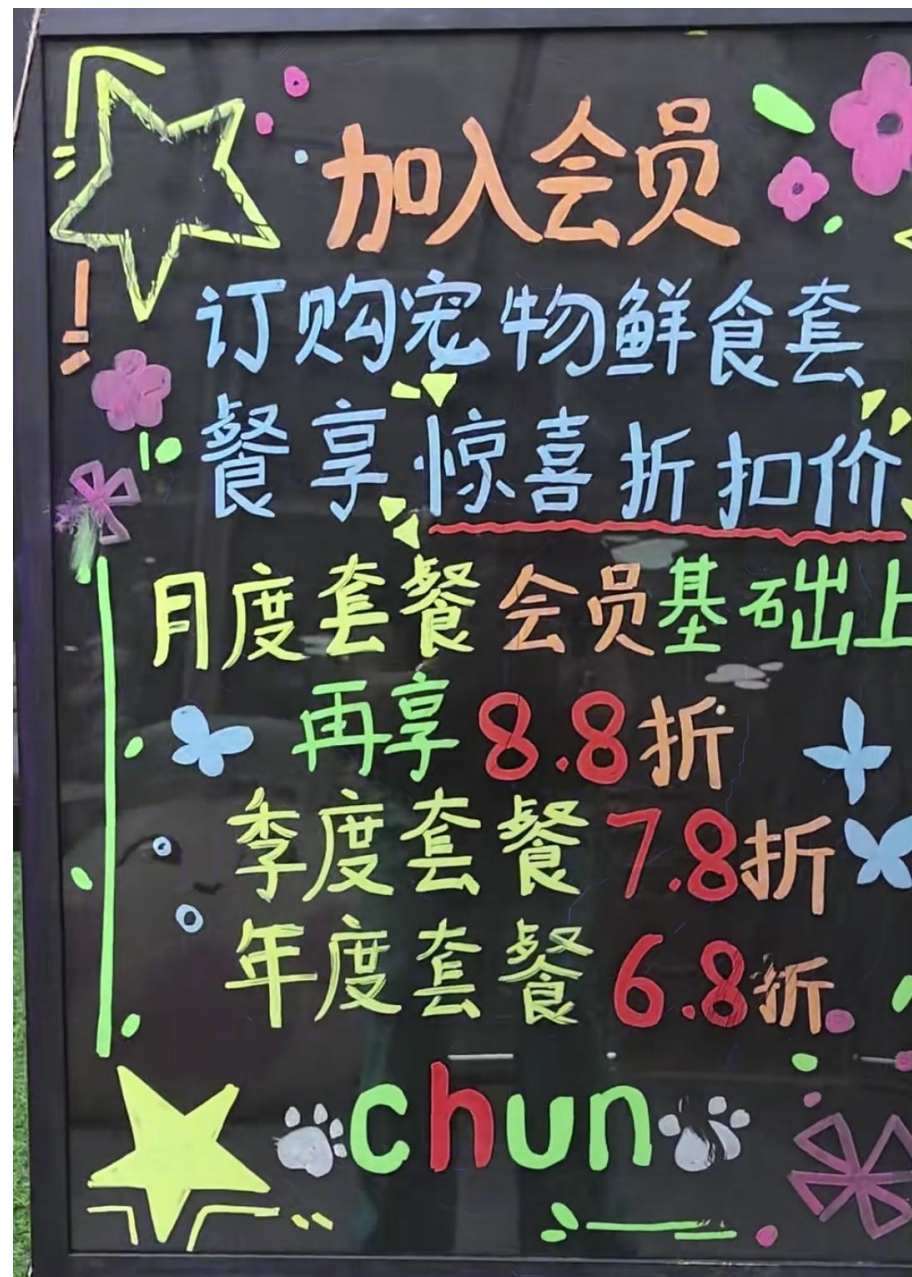 加入会员
订购宠物鲜食套
餐享惊喜折扣价
月度套餐会员基础上
再享8.8折
季度套餐7.8折
年度套餐6.8折
chun